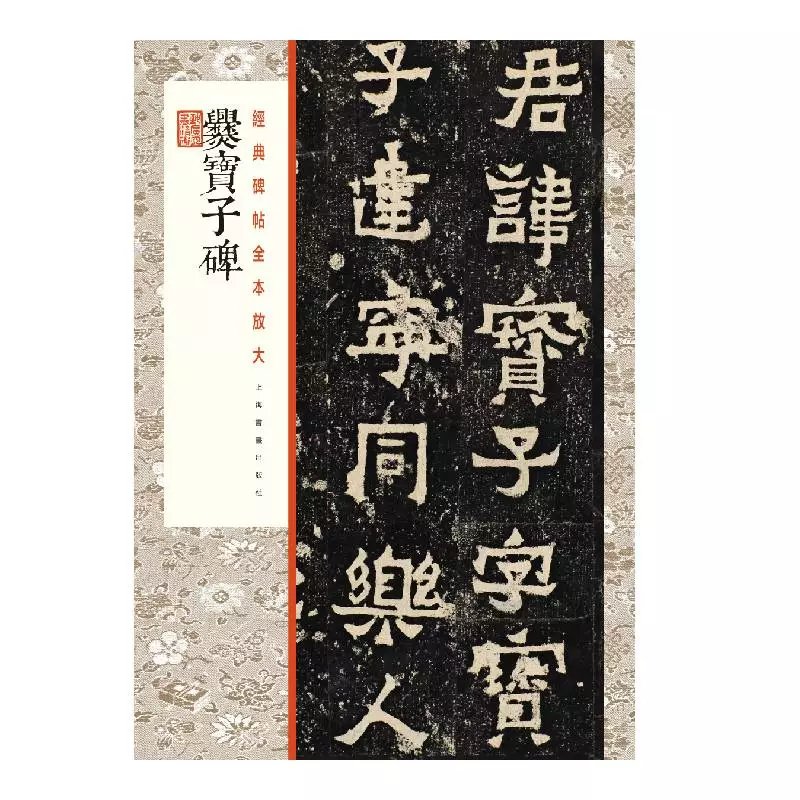 君諱寶子字寶
子建寧同樂人
經典碑帖全本放大
上海書畫出版社
爨寶子碑